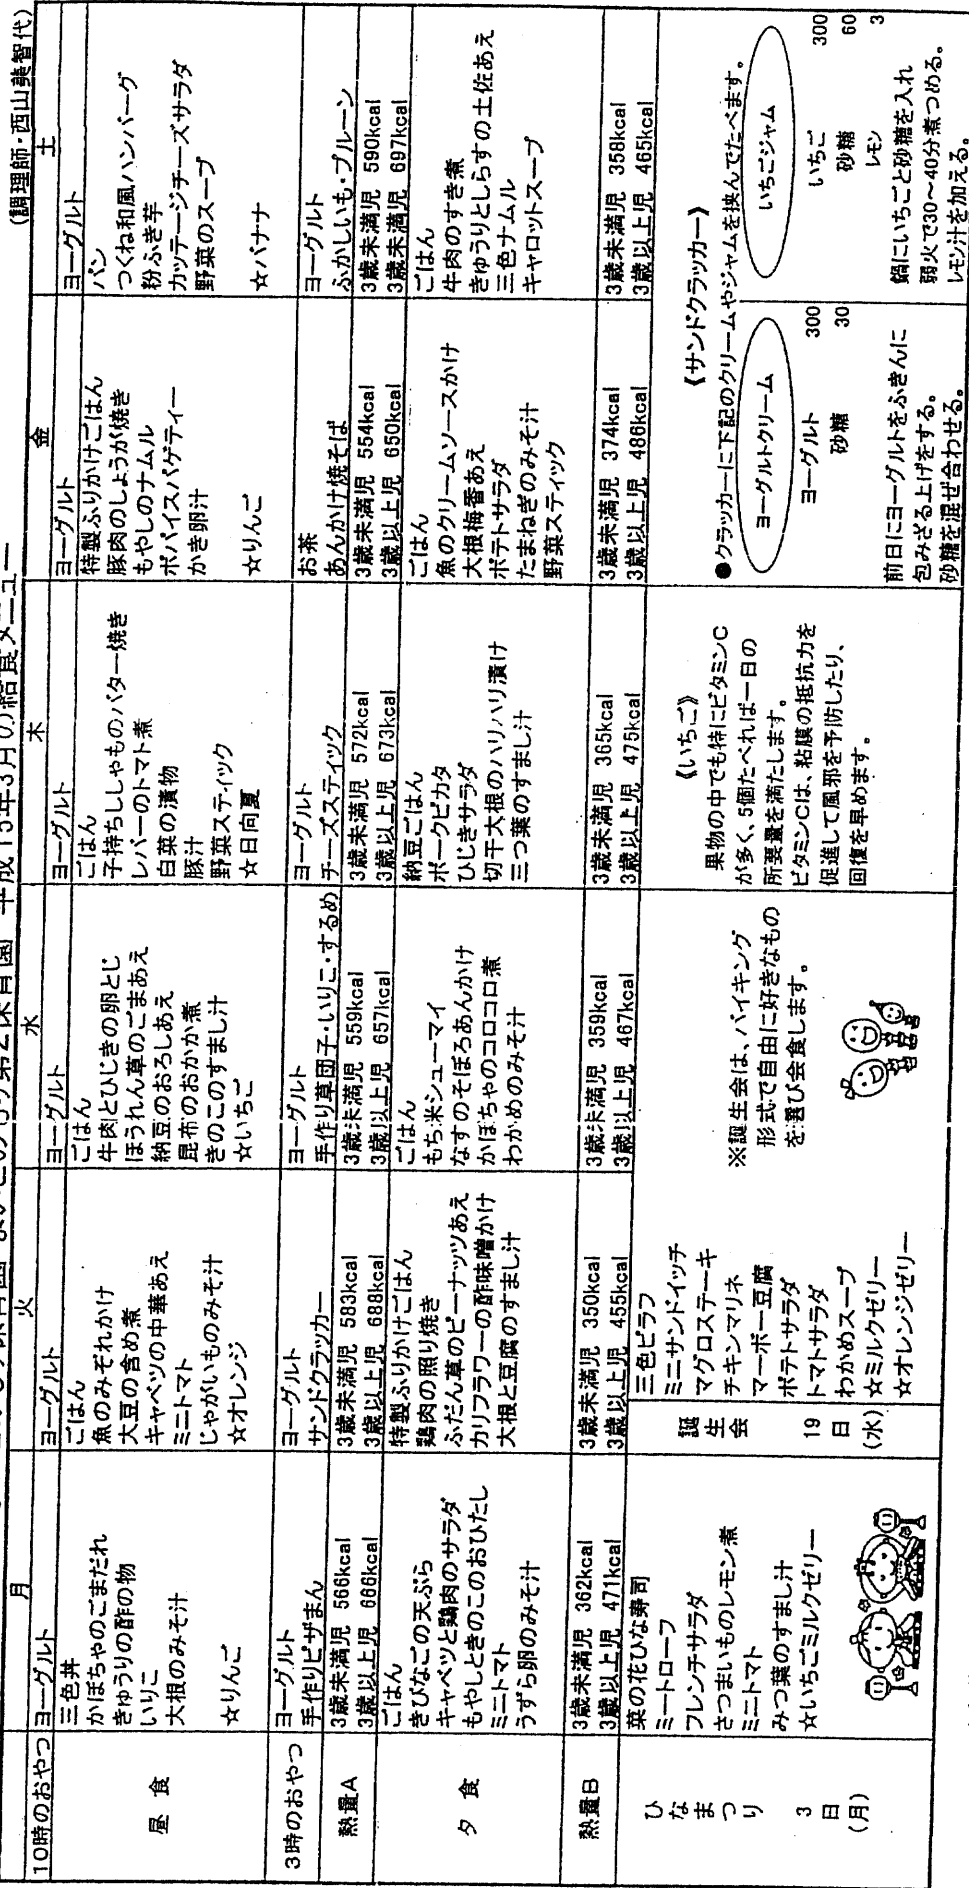 第2保育園 平成15年3月の給食メニュー
(調理師・西山美智代)
月 火 水 木 金 土
10時のおやつ ヨーグルト ヨーグルト ヨーグルト ヨーグルト ヨーグルト ヨーグルト
昼食
三色丼
かぼちゃのごまだれ
きゅうりの酢の物
いりこ
大根のみそ汁
☆りんご
ごはん
魚のみぞれかけ
大豆の含め煮
キャベツの中華あえ
ミニトマト
じゃがいものみそ汁
☆オレンジ
ごはん
牛肉とひじきの卵とじ
ほうれん草のごまあえ
納豆のおろしあえ
昆布のおかか煮
きのこのすまし汁
☆いちご
ごはん
子持ちししゃものバター焼き
レバーのトマト煮
白菜の漬物
豚汁
野菜スティック
☆日向夏
特製ふりかけごはん
豚肉のしょうが焼き
もやしのナムル
ポパイスパゲティー
かき卵汁
☆りんご
パン
つくね和風ハンバーグ
粉ふき芋
カッテージチーズサラダ
野菜のスープ
☆バナナ
3時のおやつ
ヨーグルト
手作りピザまん
ヨーグルト
サンドクラッカー
ヨーグルト
手作り草団子・いりこ・するめ
ヨーグルト
チーズスティック
お茶
あんかけ焼そば
ヨーグルト
ふかしいも・プルーン
熱量A
3歳未満児 566kcal
3歳以上児 666kcal
3歳未満児 583kcal
3歳以上児 688kcal
3歳未満児 559kcal
3歳以上児 657kcal
3歳未満児 572kcal
3歳以上児 673kcal
3歳未満児 554kcal
3歳以上児 650kcal
3歳未満児 590kcal
3歳以上児 697kcal
夕食
ごはん
きびなごの天ぷら
キャベツと鶏肉のサラダ
もやしときのこのおひたし
ミニトマト
うずら卵のみそ汁
特製ふりかけごはん
鶏肉の照り焼き
ふだん草のピーナッツあえ
カリフラワーの酢味噌かけ
大根と豆腐のすまし汁
ごはん
もち米シューマイ
なすのそぼろあんかけ
かぼちゃのコロコロ煮
わかめのみそ汁
納豆ごはん
ポークピカタ
ひじきサラダ
切干大根のハリハリ漬け
三つ葉のすまし汁
ごはん
魚のクリームソースかけ
大根梅香あえ
ポテトサラダ
たまねぎのみそ汁
野菜スティック
ごはん
牛肉のすき煮
きゅうりとしらすの土佐あえ
三色ナムル
キャロットスープ
熱量B
3歳未満児 362kcal
3歳以上児 471kcal
3歳未満児 350kcal
3歳以上児 455kcal
3歳未満児 359kcal
3歳以上児 467kcal
3歳未満児 365kcal
3歳以上児 475kcal
3歳未満児 374kcal
3歳以上児 486kcal
3歳未満児 358kcal
3歳以上児 465kcal
ひなまつり
3日
(月)
菜の花ひな寿司
ミートローフ
フレンチサラダ
さつまいものレモン煮
ミニトマト
みつ葉のすまし汁
☆いちごミルクゼリー
誕生会
19日
(水)
三色ピラフ
ミニサンドイッチ
マグロステーキ
チキンマリネ
マーボー豆腐
ポテトサラダ
トマトサラダ
わかめスープ
☆ミルクゼリー
☆オレンジゼリー
※誕生会は、バイキング
形式で自由に好きなもの
を選び会食します。
《いちご》
果物の中でも特にビタミンC
が多く、5個たべれば一日の
所要量を満たします。
ビタミンCは、粘膜の抵抗力を
促進して風邪を予防したり、
回復を早めます。
《サンドクラッカー》
●クラッカーに下記のクリームやジャムを挟んでたべます。
ヨーグルトクリーム
ヨーグルト 300
砂糖 30
前日にヨーグルトをふきんに
包みざる上げをする。
砂糖を混ぜ合わせる。
いちごジャム
いちご 300
砂糖 60
レモン 3
鍋にいちごと砂糖を入れ
弱火で30~40分煮つめる。
レモン汁を加える。